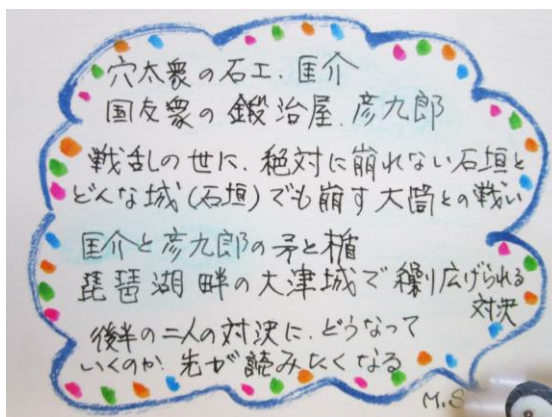 穴太衆の石工、匡介
国友衆の鍛冶屋、彦九郎
戦乱の世に、絶対に崩れない石垣と
どんな城(石垣)でも崩す大筒との戦い
匡介と彦九郎の矛と楯
琵琶湖畔の大津城で繰り広げられる
対決
後半の二人の対決に、どうなって
いくのか、先が読みたくなる
M.S